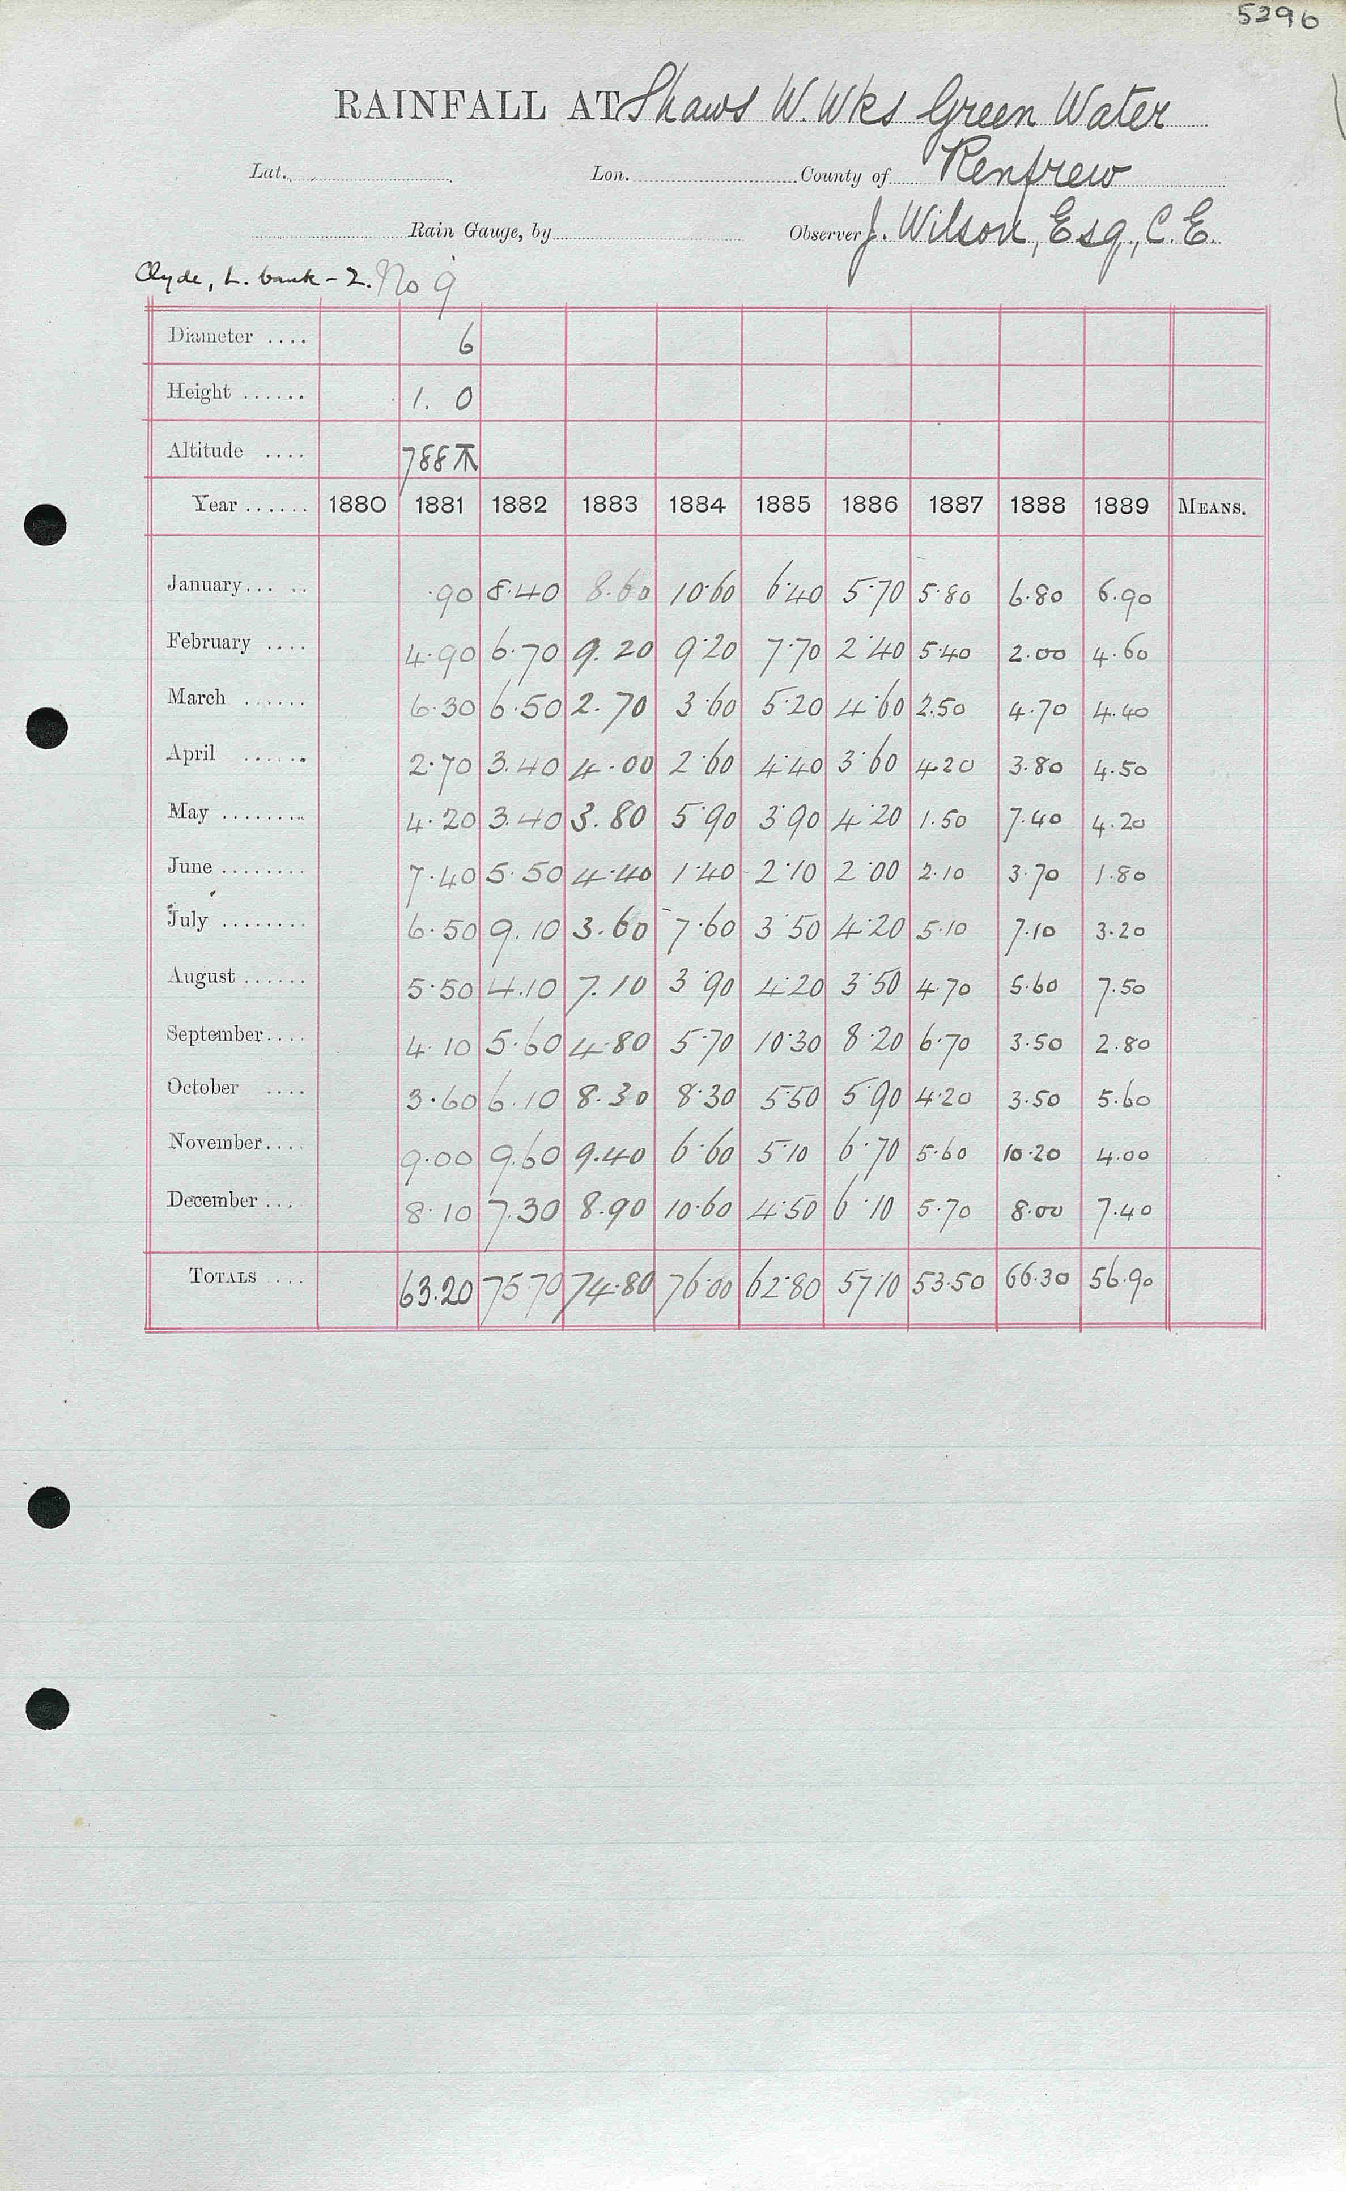 5296
RAINFALL AT Shaws W. Wks Green Water
Lat. Lon. County of Renfrew
Rain Gauge, by Observer J. Wilson, Esq., C.E.
Clyde, L. bank - 2. No 9
Diameter .... 6
Height ...... 1. 0
Altitude .... 788
Year ...... 1880 1881 1882 1883 1884 1885 1886 1887 1888 1889 MEANS.
January.... .. ·90 8·40 8·60 10·60 6·40 5·70 5·80 6·80 6·90
February .... 4·90 6·70 9.20 9·20 7·70 2·40 5·40 2·00 4·60
March ...... 6·30 6·50 2.70 3·60 5·20 4·60 2.50 4·70 4.40
April ...... 2·70 3.40 4.00 2·60 4·40 3·60 4·20 3·80 4.50
May ........ 4·20 3.40 3.80 5·90 3·90 4·20 1.50 7·40 4.20
June ........ 7·40 5·50 4·40 1·40 2·10 2·00 2·10 3·70 1.80
July ........ 6·50 9.10 3.60 7·60 3·50 4·20 5·10 7·10 3·20
August ...... 5·50 4.10 7.10 3·90 4·20 3·50 4·70 5·60 7·50
September.... 4·10 5·60 4·80 5·70 10·30 8·20 6·70 3·50 2·80
October .... 3·60 6·10 8.30 8·30 5·50 5·90 4·20 3·50 5·60
November.... 9·00 9.60 9.40 6·60 5·10 6·70 5·60 10·20 4·00
December .... 8·10 7.30 8.90 10·60 4·50 6·10 5·70 8·00 7·40
TOTALS .... 63.20 75·70 74·80 76·00 62·80 57·10 53·50 66·30 56·90